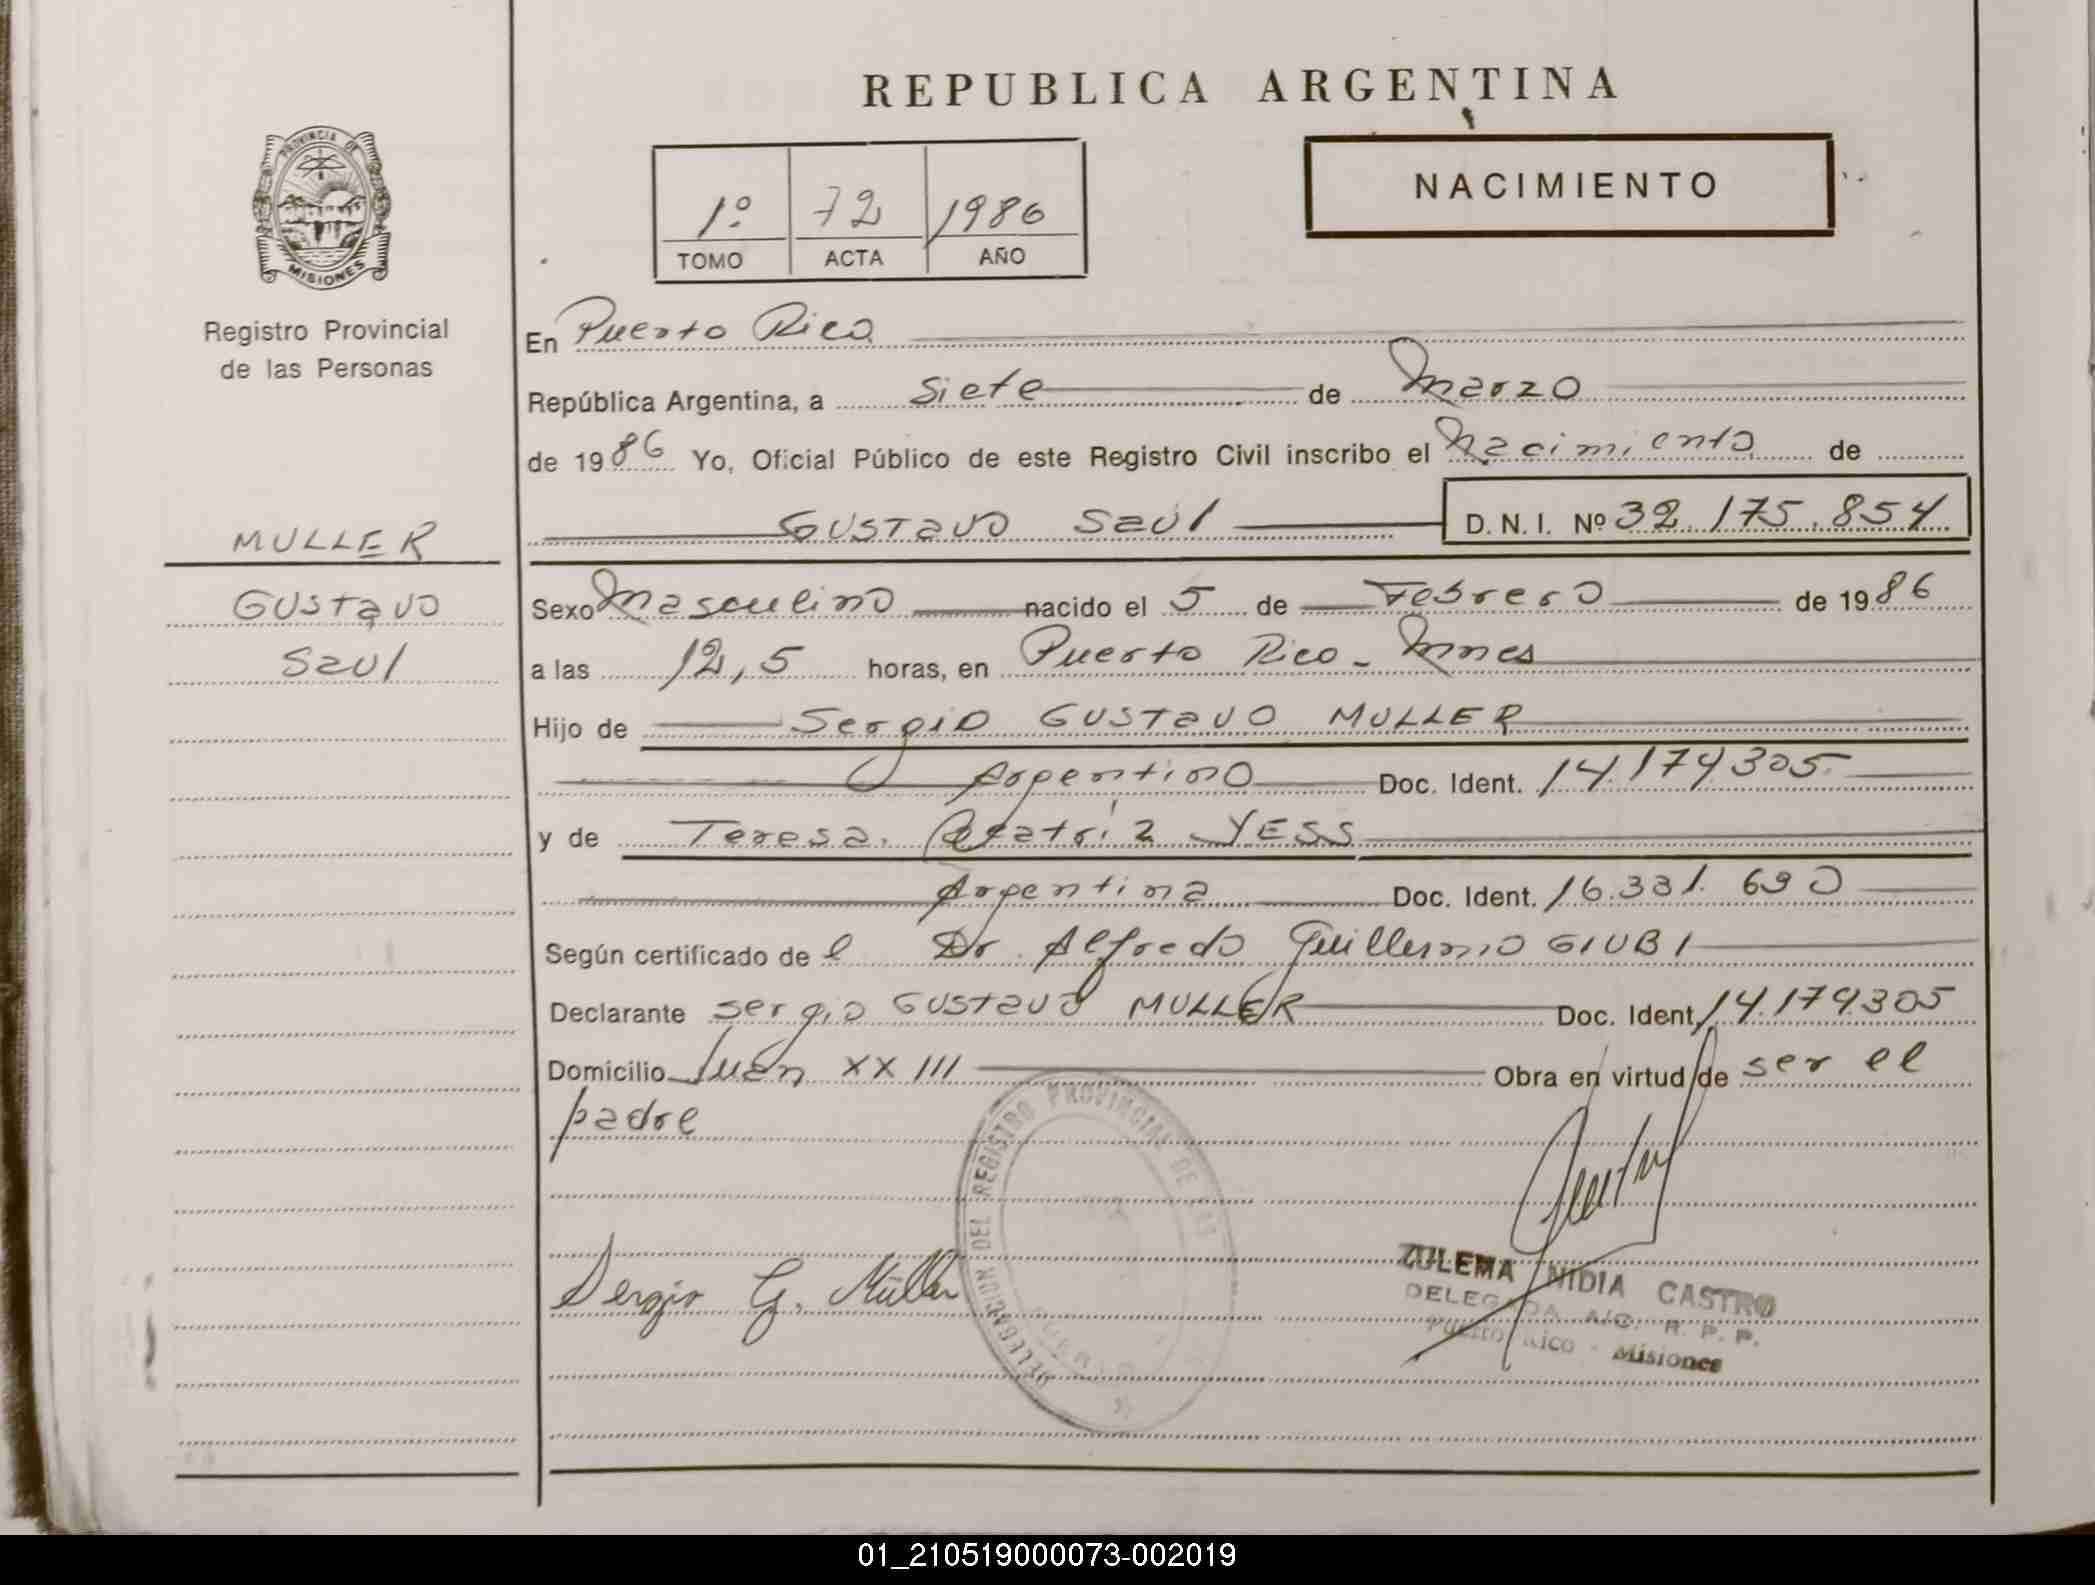 REPUBLICA ARGENTINA
PROVINCIA DE
MISIONES
Registro Provincial
de las Personas
1º 72 1986
TOMO ACTA AÑO
NACIMIENTO
En Puerto Rico
República Argentina, a Siete de Marzo
de 1986 Yo, Oficial Público de este Registro Civil inscribo el Nacimiento de
Gustavo Saúl D. N. I. Nº 32.175.854
MULLER
Gustavo
Saul
Sexo Masculino nacido el 5 de Febrero de 1986
a las 12,5 horas, en Puerto Rico - Mnes
Hijo de Sergio Gustavo MULLER
Argentino Doc. Ident. 14.174.305
y de Teresa Beatriz YESS
Argentina Doc. Ident. 16.331.690
Según certificado de l Dr. Alfredo Guillermo GIUBI
Declarante Sergio Gustavo MULLER Doc. Ident. 14.174.305
Domicilio Juan XXIII Obra en virtud de ser el
padre
DELEGACION DEL REGISTRO PROVINCIAL DE LAS
Sergio G. Müller
ZULEMA NIDIA CASTRO
DELEGADA A/C. R. P. P.
Puerto Rico - Misiones
01_210519000073-002019